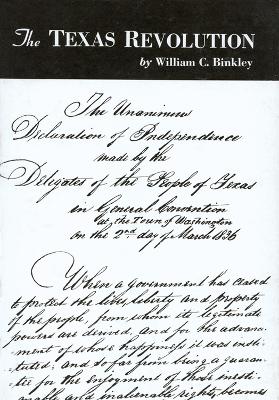 The TEXAS REVOLUTION
by William C. Binkley
The Unanimous
Declaration of Independence
made by the
Delegates of the People of Texas
in General Convention
at the Town of Washington
on the 2nd day of March 1836
When a government has ceased
to protect the lives, liberty and property
of the people, from whom its legitimate
powers are derived, and for the advance-
ment of whose happiness it was insti-
tuted; and so far from being a guaran-
tee for the enjoyment of those inesti-
mable and inalienable rights, becomes